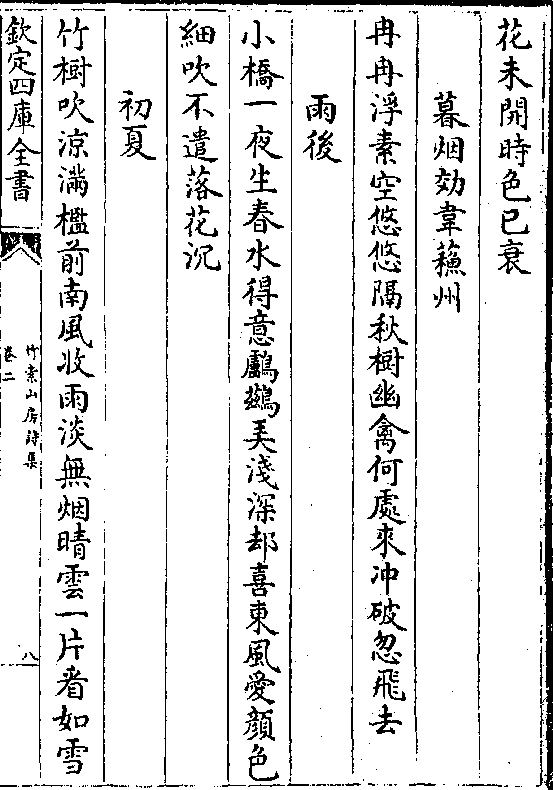 花未開時色已衰
暮烟効韋蘓州
冉冉浮素空悠悠隔秋樹幽禽何處來冲破忽飛去
雨後
小橋一夜生春水得意鸕鷀美淺深却喜東風愛顔色
細吹不遣落花沉
初夏
竹樹吹涼滿檻前南風收雨淡無烟晴雲一片看如雪
欽定四庫全書
竹素山房詩集
卷二
八